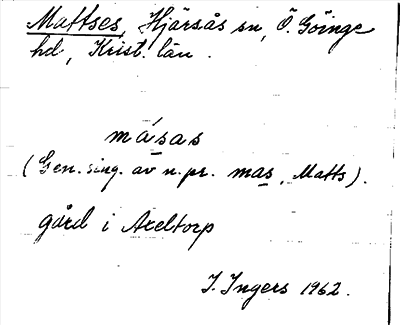 Mattses, Hjärsås sn, Ö. Göinge
hd, Krist. län.
másas
(Gen. sing. av n. pr. mas, Matts).
gård i Axeltorp
I. Ingers 1962.